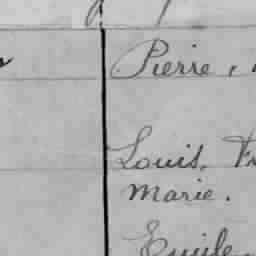 Pierre,
Louis,
marie.
Emile